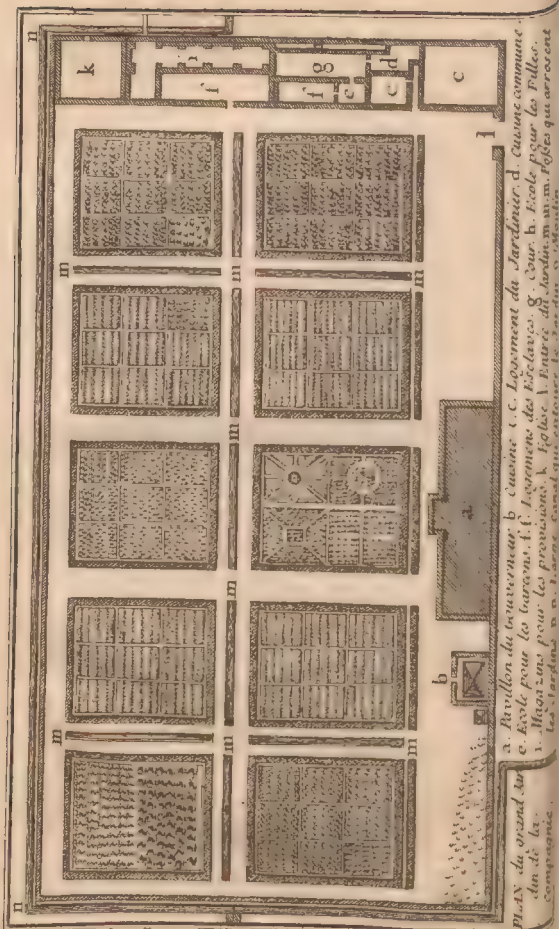 PLAN du grand Jar
din de la
compagnie
a. Pavillon du Gouverneur b Cuisine c. c. Logement du Jardinier. d. cuisine commune.
e. Ecole pour les Garcons. f. f. Logemens des Esclaves. g. Cour. h. Ecole pour les Filles.
i. Magazins pour les provisions. k Eglise. l Entrée du Jardin. m. m. m. Fosses qui arrosent
le Jardin. n. n.
n
k
i
f
h
g
f
e
d
e
c
l
m
m
m
m
m
m
m
m
n
b
a